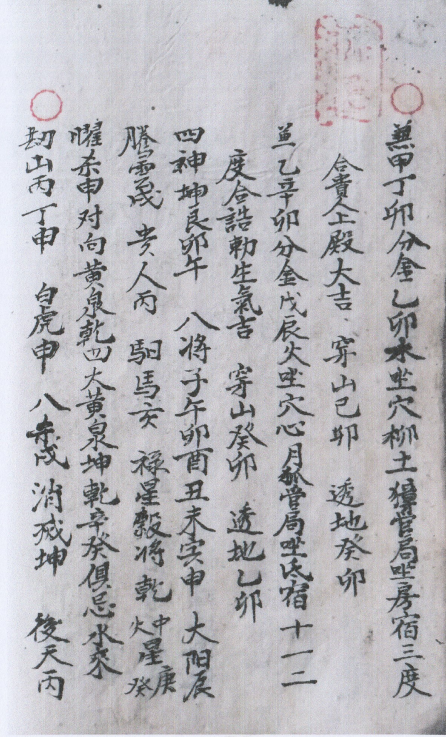 兼甲丁卯分金乙卯水坐穴柳土獐管局坐房宿三度
合貴人上殿大吉 穿山己卯 透地癸卯
兼乙辛卯分金戊辰火坐穴心月狐管局坐氐宿十一二
度合誥勅生氣吉 穿山癸卯 透地乙卯
四神坤艮卯午 八将子午卯酉丑未寅申 大阳辰
騰雲戌 贵人丙 馹馬亥 禄星毅将乾 中星庚 火癸
曜杀申对向黄泉乾四大黄泉坤乾辛癸俱忌水来
刼山丙丁申 白虎申 八杀戌 消滅坤 後天丙